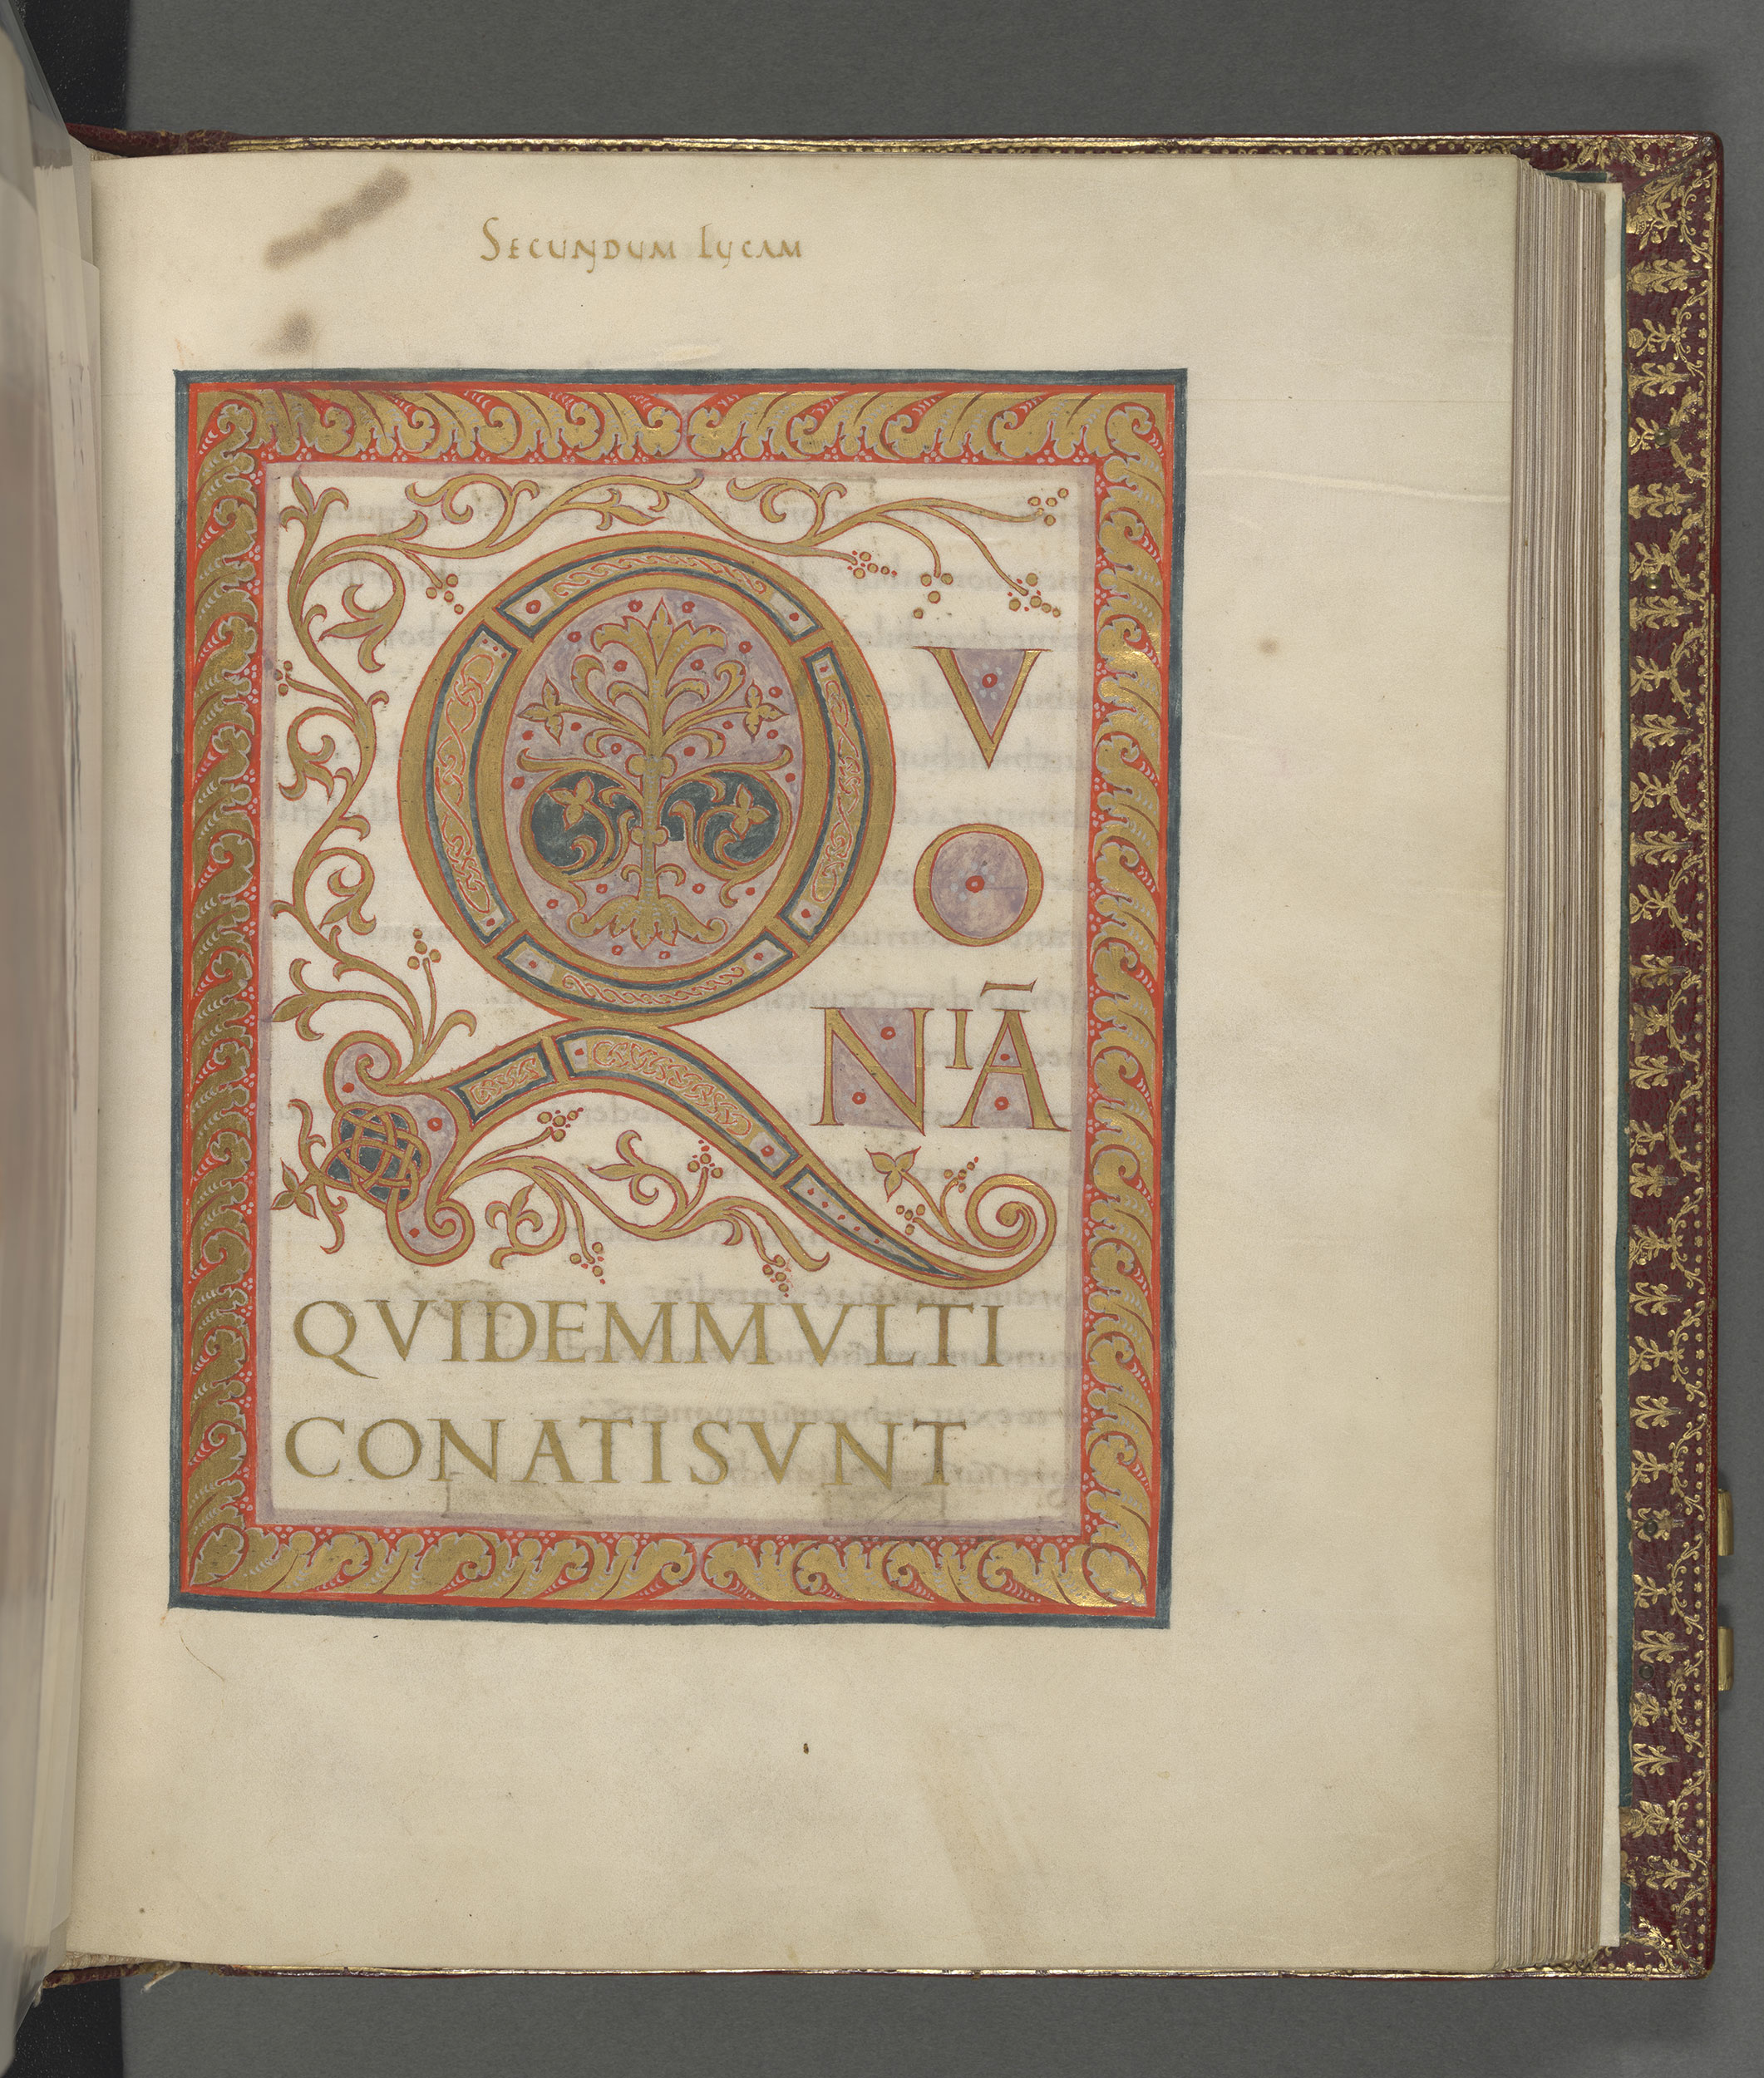 SECUNDUM LUCAM
Q
V
O
NIĀ
QVIDEMMVLTI
CONATISVNT